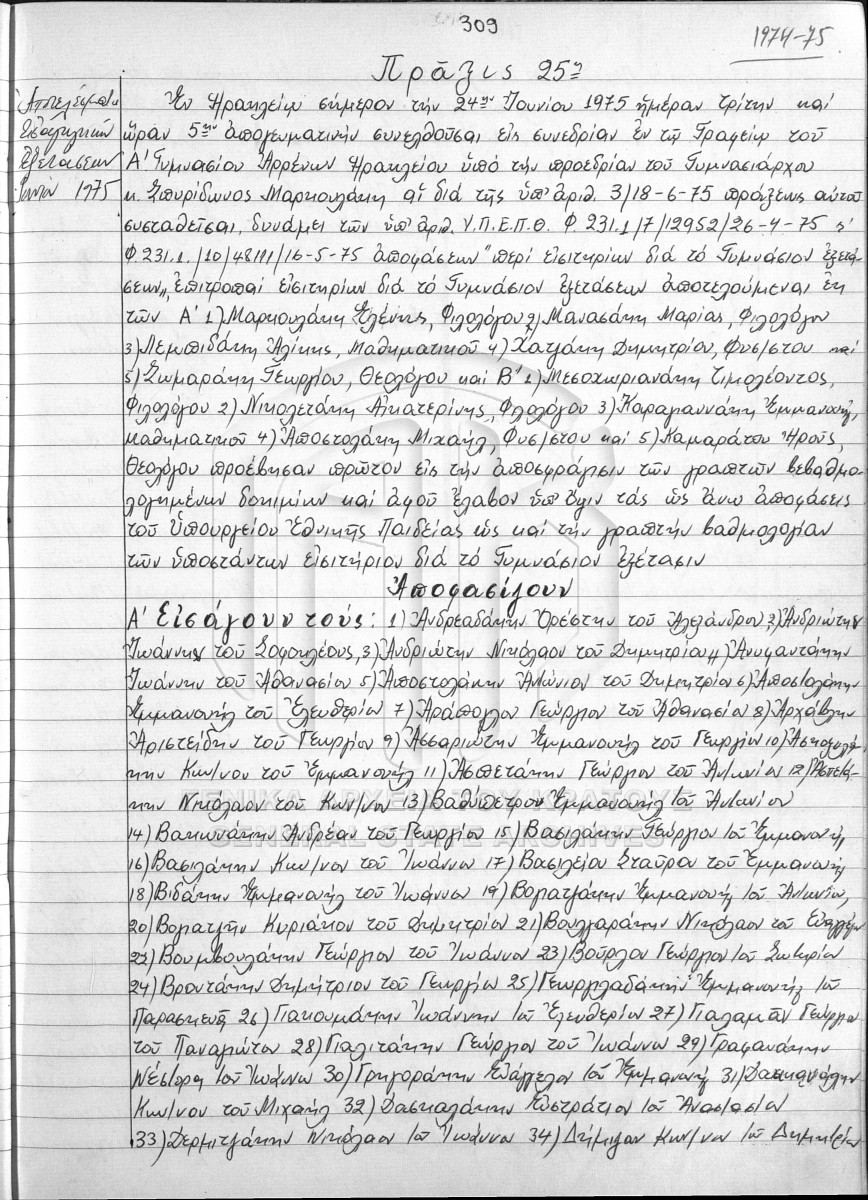 309
1974-75
Πρᾶξις 25η
Ἀποτελέσματα
Εἰσαγωγικῶν
Ἐξετάσεων
1975
Ἐν Ἡρακλείῳ σήμερον τήν 24ην Ἰουνίου 1975 ἡμέραν τρίτην καί
ὥραν 5ην ἀπογευματινήν συνελθοῦσαι εἰς συνεδρίαν ἐν τῷ Γραφείῳ τοῦ
Α' Γυμνασίου Ἀρρένων Ἡρακλείου ὑπό τήν προεδρίαν τοῦ Γυμνασιάρχου
κ. Σπυρίδωνος Μαρκουλάκη αἱ διά τῆς ὑπ' ἀριθ. 3/18-6-75 πράξεως αὐτοῦ
συσταθεῖσαι, δυνάμει τῶν ὑπ' ἀριθ. Υ.Π.Ε.Π.Θ. Φ.231.1/7/12952/26-4-75 κ'
Φ.231.1./10/48111/16-5-75 ἀποφάσεων "περί εἰσιτηρίων διά τό Γυμνάσιον ἐξετά-
σεων", ἐπιτροπαί εἰσιτηρίων διά τό Γυμνάσιον ἐξετάσεων ἀποτελούμεναι ἐκ
τῶν Α' 1) Μαρκουλάκη Ἑλένης, Φιλολόγου 2) Μανασάκη Μαρίας, Φιλολόγου
3) Λεμπιδάκη Ἀλίκης, Μαθηματικοῦ 4) Χατζάκη Δημητρίου, Φυσ/στου καί
5) Σωμαράκη Γεωργίου, Θεολόγου καί Β' 1) Μεσοχωριανάκη Τιμολέοντος,
Φιλολόγου 2) Νικολετάκη Αἰκατερίνης, Φιλολόγου 3) Καραγιαννάκη Ἐμμανουήλ,
μαθηματικοῦ 4) Ἀποστολάκη Μιχαήλ, Φυσ/στου καί 5) Καμαράτου Ἡροῦς,
Θεολόγου προέβησαν πρῶτον εἰς τήν ἀποσφράγισιν τῶν γραπτῶν βεβαθμο-
λογημένων δοκιμίων καί ἀφοῦ ἔλαβον ὑπ' ὄψιν τάς ὡς ἄνω ἀποφάσεις
τοῦ Ὑπουργείου Ἐθνικῆς Παιδείας ὡς καί τήν γραπτήν βαθμολογίαν
τῶν ὑποστάντων εἰσιτήριον διά τό Γυμνάσιον ἐξέτασιν
Ἀποφασίζουν
Α' Εἰσάγουν τούς: 1) Ἀνδρεαδάκην Ὀρέστην τοῦ Ἀλεξάνδρου, 2) Ἀνδριώτην
Ἰωάννην τοῦ Σοφοκλέους, 3) Ἀνδριώτην Νικόλαον τοῦ Δημητρίου 4) Ἀνυφαντάκην
Ἰωάννην τοῦ Ἀθανασίου 5) Ἀποστολάκην Ἀντώνιον τοῦ Δημητρίου 6) Ἀποστολάκην
Ἐμμανουήλ τοῦ Ἐλευθερίου 7) Ἀράπογλου Γεώργιον τοῦ Ἀθανασίου 8) Ἀρχάβλην
Ἀριστείδην τοῦ Γεωργίου 9) Ἀσσαριώτην Ἐμμανουήλ τοῦ Γεωργίου 10) Ἀσκοξυλά-
κην Κων/νον τοῦ Ἐμμανουήλ 11) Ἀσπετάκην Γεώργιον τοῦ Ἀντωνίου 12) Ἀσπετά-
κην Νικόλαον τοῦ Κων/νου 13) Βαθύπετρον Ἐμμανουήλ τοῦ Ἀντωνίου
14) Βακωνάκην Ἀνδρέαν τοῦ Γεωργίου 15) Βασιλάκην Γεώργιον τοῦ Ἐμμανουήλ
16) Βασιλάκην Κων/νον τοῦ Ἰωάννου 17) Βασιλείου Σταῦρον τοῦ Ἐμμανουήλ
18) Βιδάκην Ἐμμανουήλ τοῦ Ἰωάννου 19) Βογιατζάκην Ἐμμανουήλ τοῦ Ἀντωνίου,
20) Βογιατζῆν Κυριάκον τοῦ Δημητρίου 21) Βουλγαράκην Νικόλαον τοῦ Εὐαγγέλου
22) Βουμβουλάκην Γεώργιον τοῦ Ἰωάννου 23) Βοῦρλον Γεώργιον τοῦ Σωτηρίου
24) Βροντάκην Δημήτριον τοῦ Γεωργίου 25) Γεωργιλαδάκην Ἐμμανουήλ τοῦ
Παρασκευᾶ 26) Γιακουμάκην Ἰωάννην τοῦ Ἐλευθερίου 27) Γιαλαμᾶν Γεώργιον
τοῦ Παναγιώτου 28) Γιαλιτάκην Γεώργιον τοῦ Ἰωάννου 29) Γραφανάκην
Νέστορα τοῦ Ἰωάννου 30) Γρηγοράκην Εὐάγγελον τοῦ Ἐμμανουήλ 31) Δασκαλάκην
Κων/νον τοῦ Μιχαήλ 32) Δασκαλάκην Εὐστράτιον τοῦ Ἀναστασίου
33) Δερμιτζάκην Νικόλαον τοῦ Ἰωάννου 34) Δήμιζαν Κων/νον τοῦ Δημητρίου
ΓΕΝΙΚΑ ΑΡΧΕΙΑ ΤΟΥ ΚΡΑΤΟΥΣ
GENERAL STATE ARCHIVES